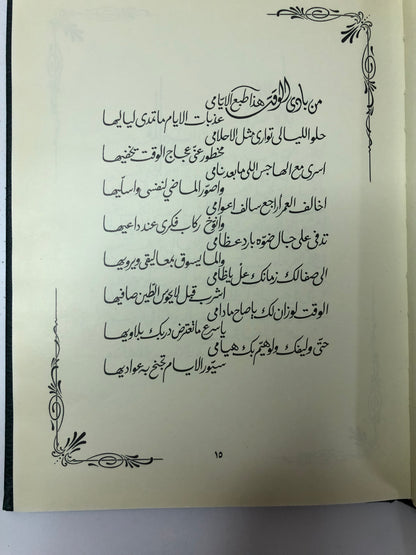 من بادي الوقت هذا طبع الايامي
عذبات الايام ما تمدي لياليها
حلو الليالي توارى مثل الاحلامي
مخطور عني عجاج الوقت يخفيها
اسرى مع الهاجس اللي ما بعد نامي
واصور الماضي لنفسي واسليها
اخالف العمر اراجع سالف اعوامي
وانوخ ركاب فكري عند داعيها
تدفى على جال ضوه بارد عظامي
والما يسوق بمعاليقي ويرويها
الى صفا لك زمانك عل يا ظامي
اشرب قبل لا يحوس الطين صافيها
الوقت لو زان لك يا صاح ما دامي
يا سرع ما تعترض دربك بلاويها
حتى وليفك ولو هيم بك هيامي
سيور الايام تجنح به عواديها
١٥